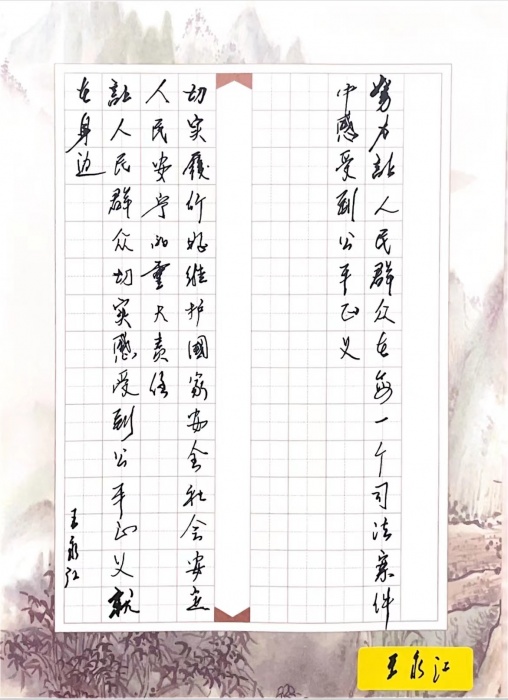 努力让人民群众在每一个司法案件
中感受到公平正义
切实履行好维护國家安全社会安定
人民安宁的重大责任
让人民群众切实感受到公平正义就
在身边
王永江
王永江